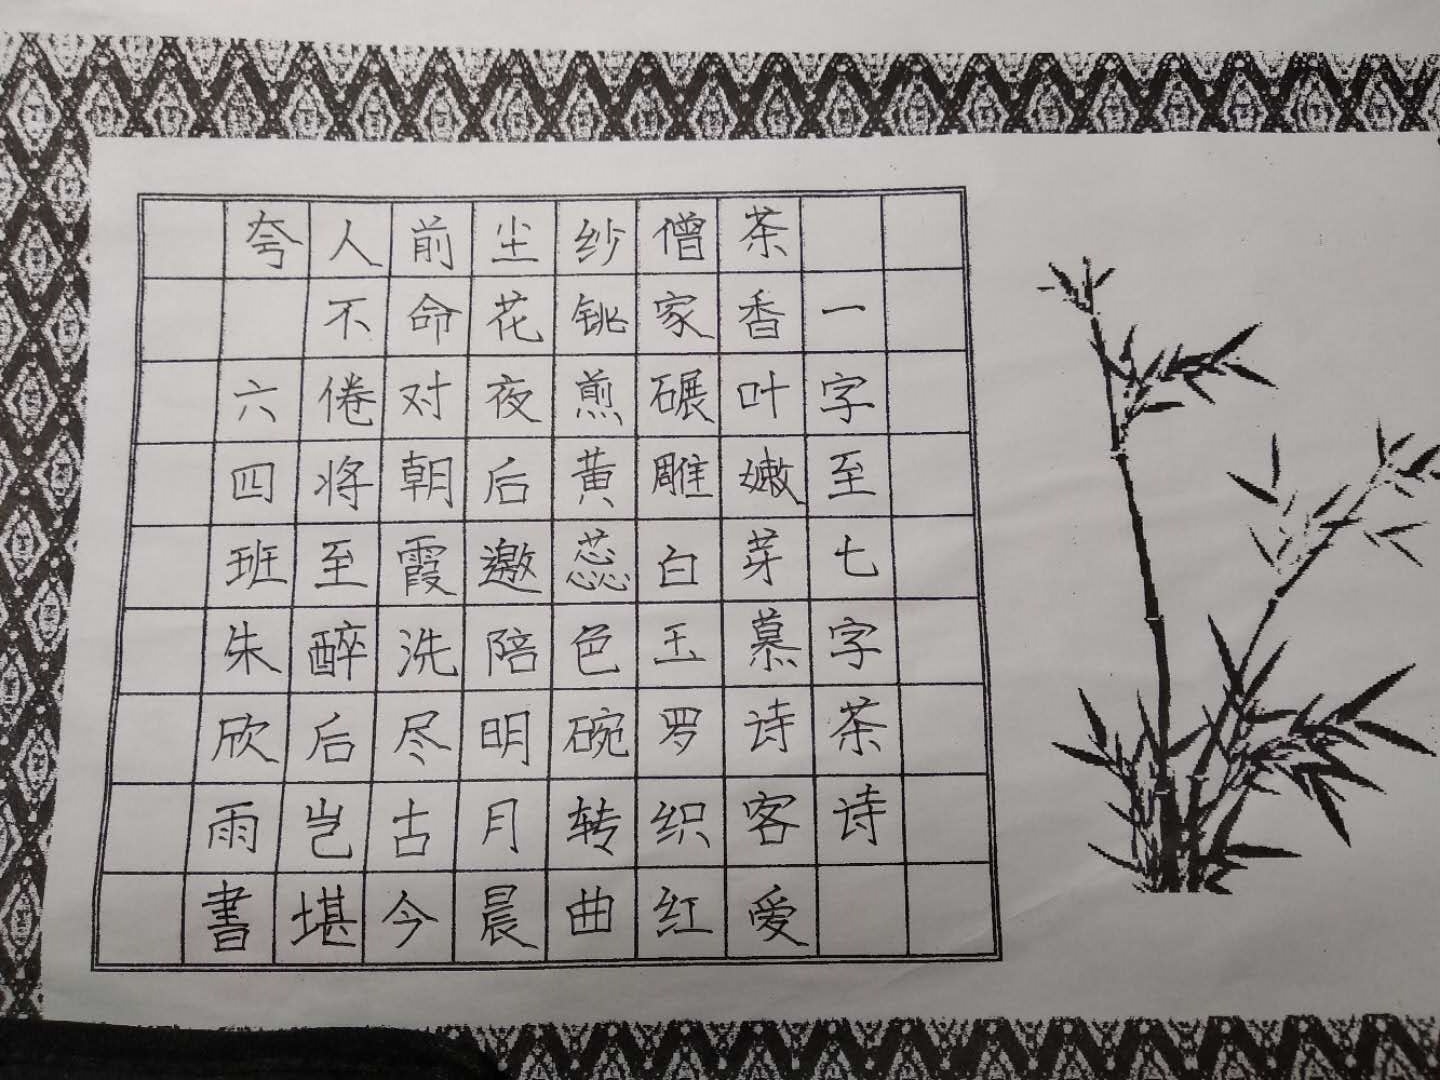 一字至七字茶诗
茶香叶嫩芽慕诗客爱
僧家碾雕白玉罗织红
纱铫煎黄蕊色碗转曲
尘花夜后邀陪明月晨
前命对朝霞洗尽古今
人不倦将至醉后岂堪
夸六四班朱欣雨書